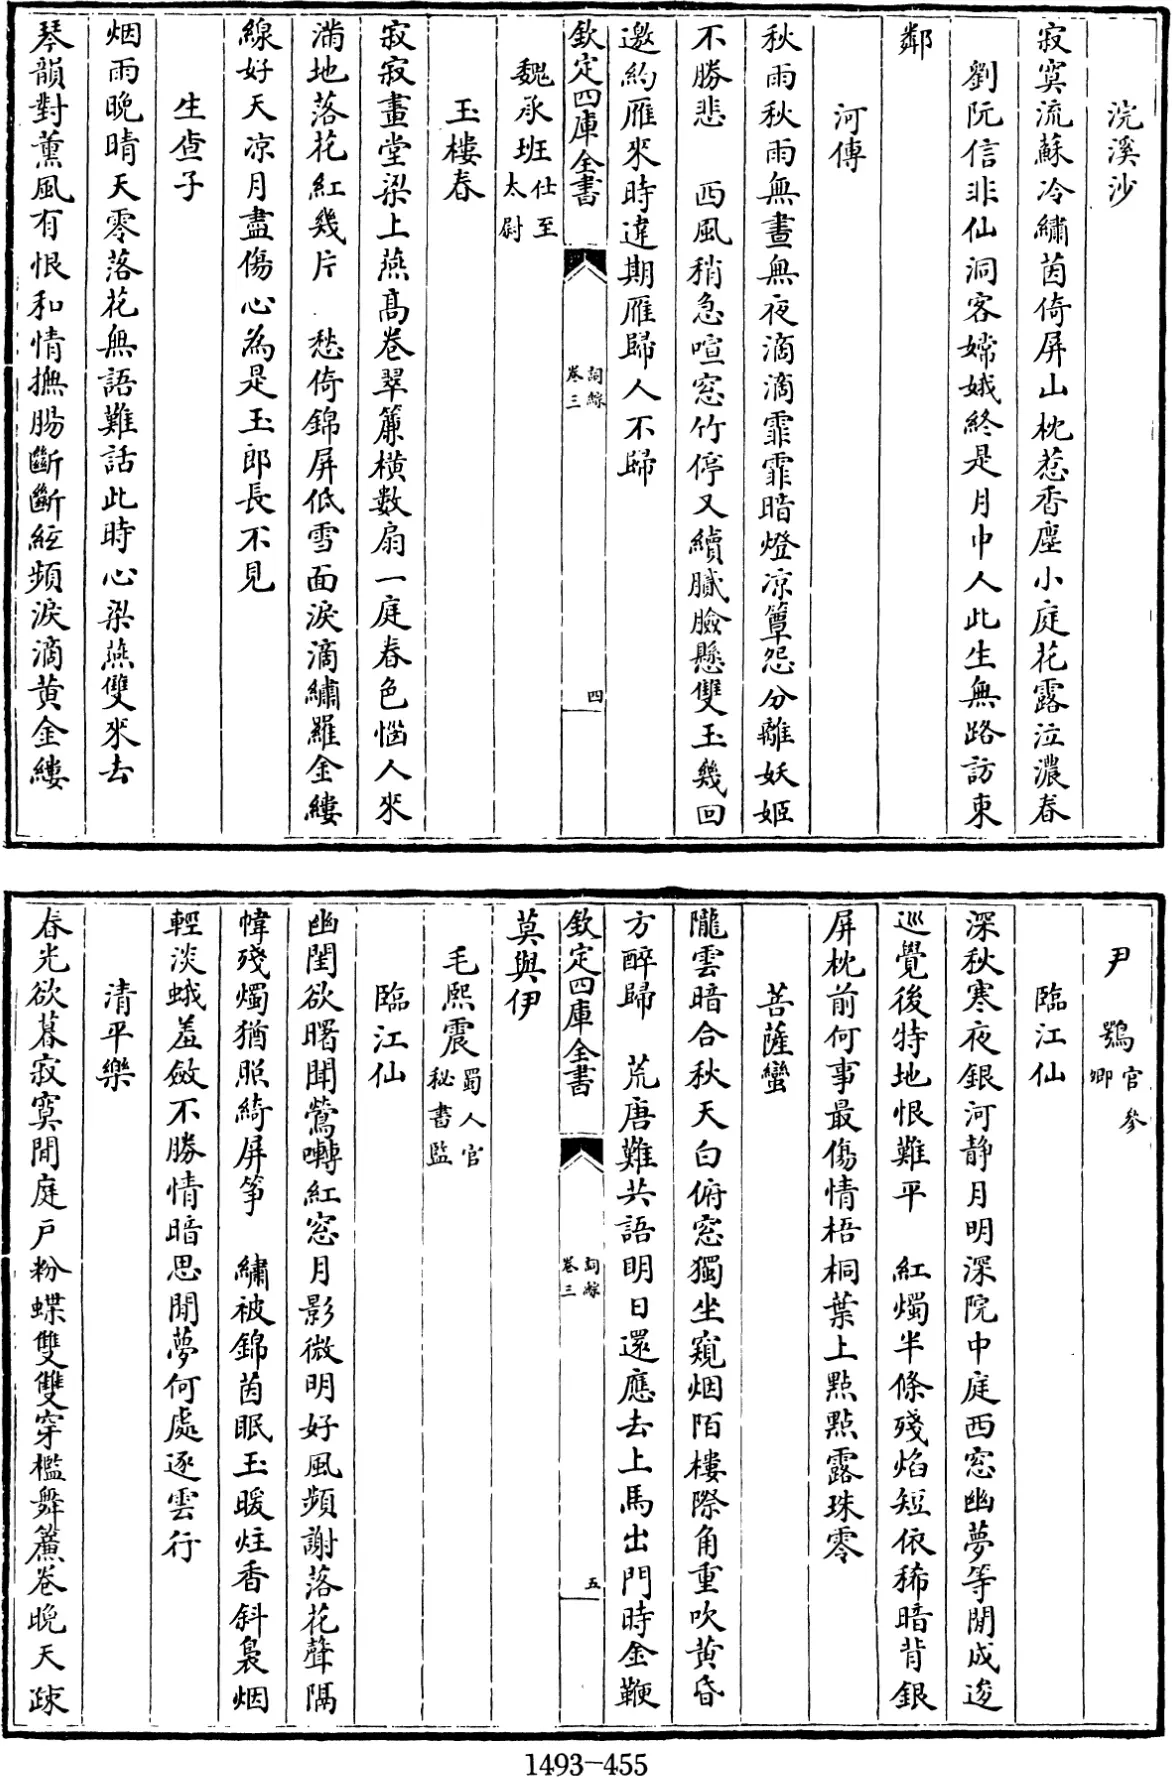 浣溪沙
寂寞流蘇冷繡茵倚屏山枕惹香塵小庭花露泣濃春
劉阮信非仙洞客嫦娥終是月中人此生無路訪東
鄰
河傳
秋雨秋雨無晝無夜滴滴霏霏暗燈凉簟怨分離妖姬
不勝悲　西風稍急喧窓竹停又續膩臉懸雙玉幾回
邀約雁來時違期雁歸人不歸
欽定四庫全書
詞綜
卷三
四
魏承班仕至
太尉
玉樓春
寂寂畫堂梁上燕高卷翠簾橫數扇一庭春色惱人來
滿地落花紅幾片　愁倚錦屏低雪面淚滴繡羅金縷
線好天凉月盡傷心為是玉郎長不見
生查子
烟雨晚晴天零落花無語難話此時心梁燕雙來去
琴韻對薰風有恨和情撫腸斷斷絃頻淚滴黃金縷
尹鶚官參
卿
臨江仙
深秋寒夜銀河静月明深院中庭西窓幽夢等閒成逡
巡覺後特地恨難平　紅燭半條殘焰短依稀暗背銀
屏枕前何事最傷情梧桐葉上點點露珠零
菩薩蠻
隴雲暗合秋天白俯窓獨坐窺烟陌樓際角重吹黃昏
方醉歸　荒唐難共語明日還應去上馬出門時金鞭
莫與伊
欽定四庫全書
詞綜
卷三
五
毛熙震蜀人官
秘書監
臨江仙
幽閨欲曙聞鶯囀紅窓月影微明好風頻謝落花聲隔
幃殘燭猶照綺屏箏　繡被錦茵眠玉暖炷香斜裊烟
輕淡蛾羞斂不勝情暗思閒夢何處逐雲行
清平樂
春光欲暮寂寞閒庭戶粉蝶雙雙穿檻舞簾卷晚天疎
1493-455